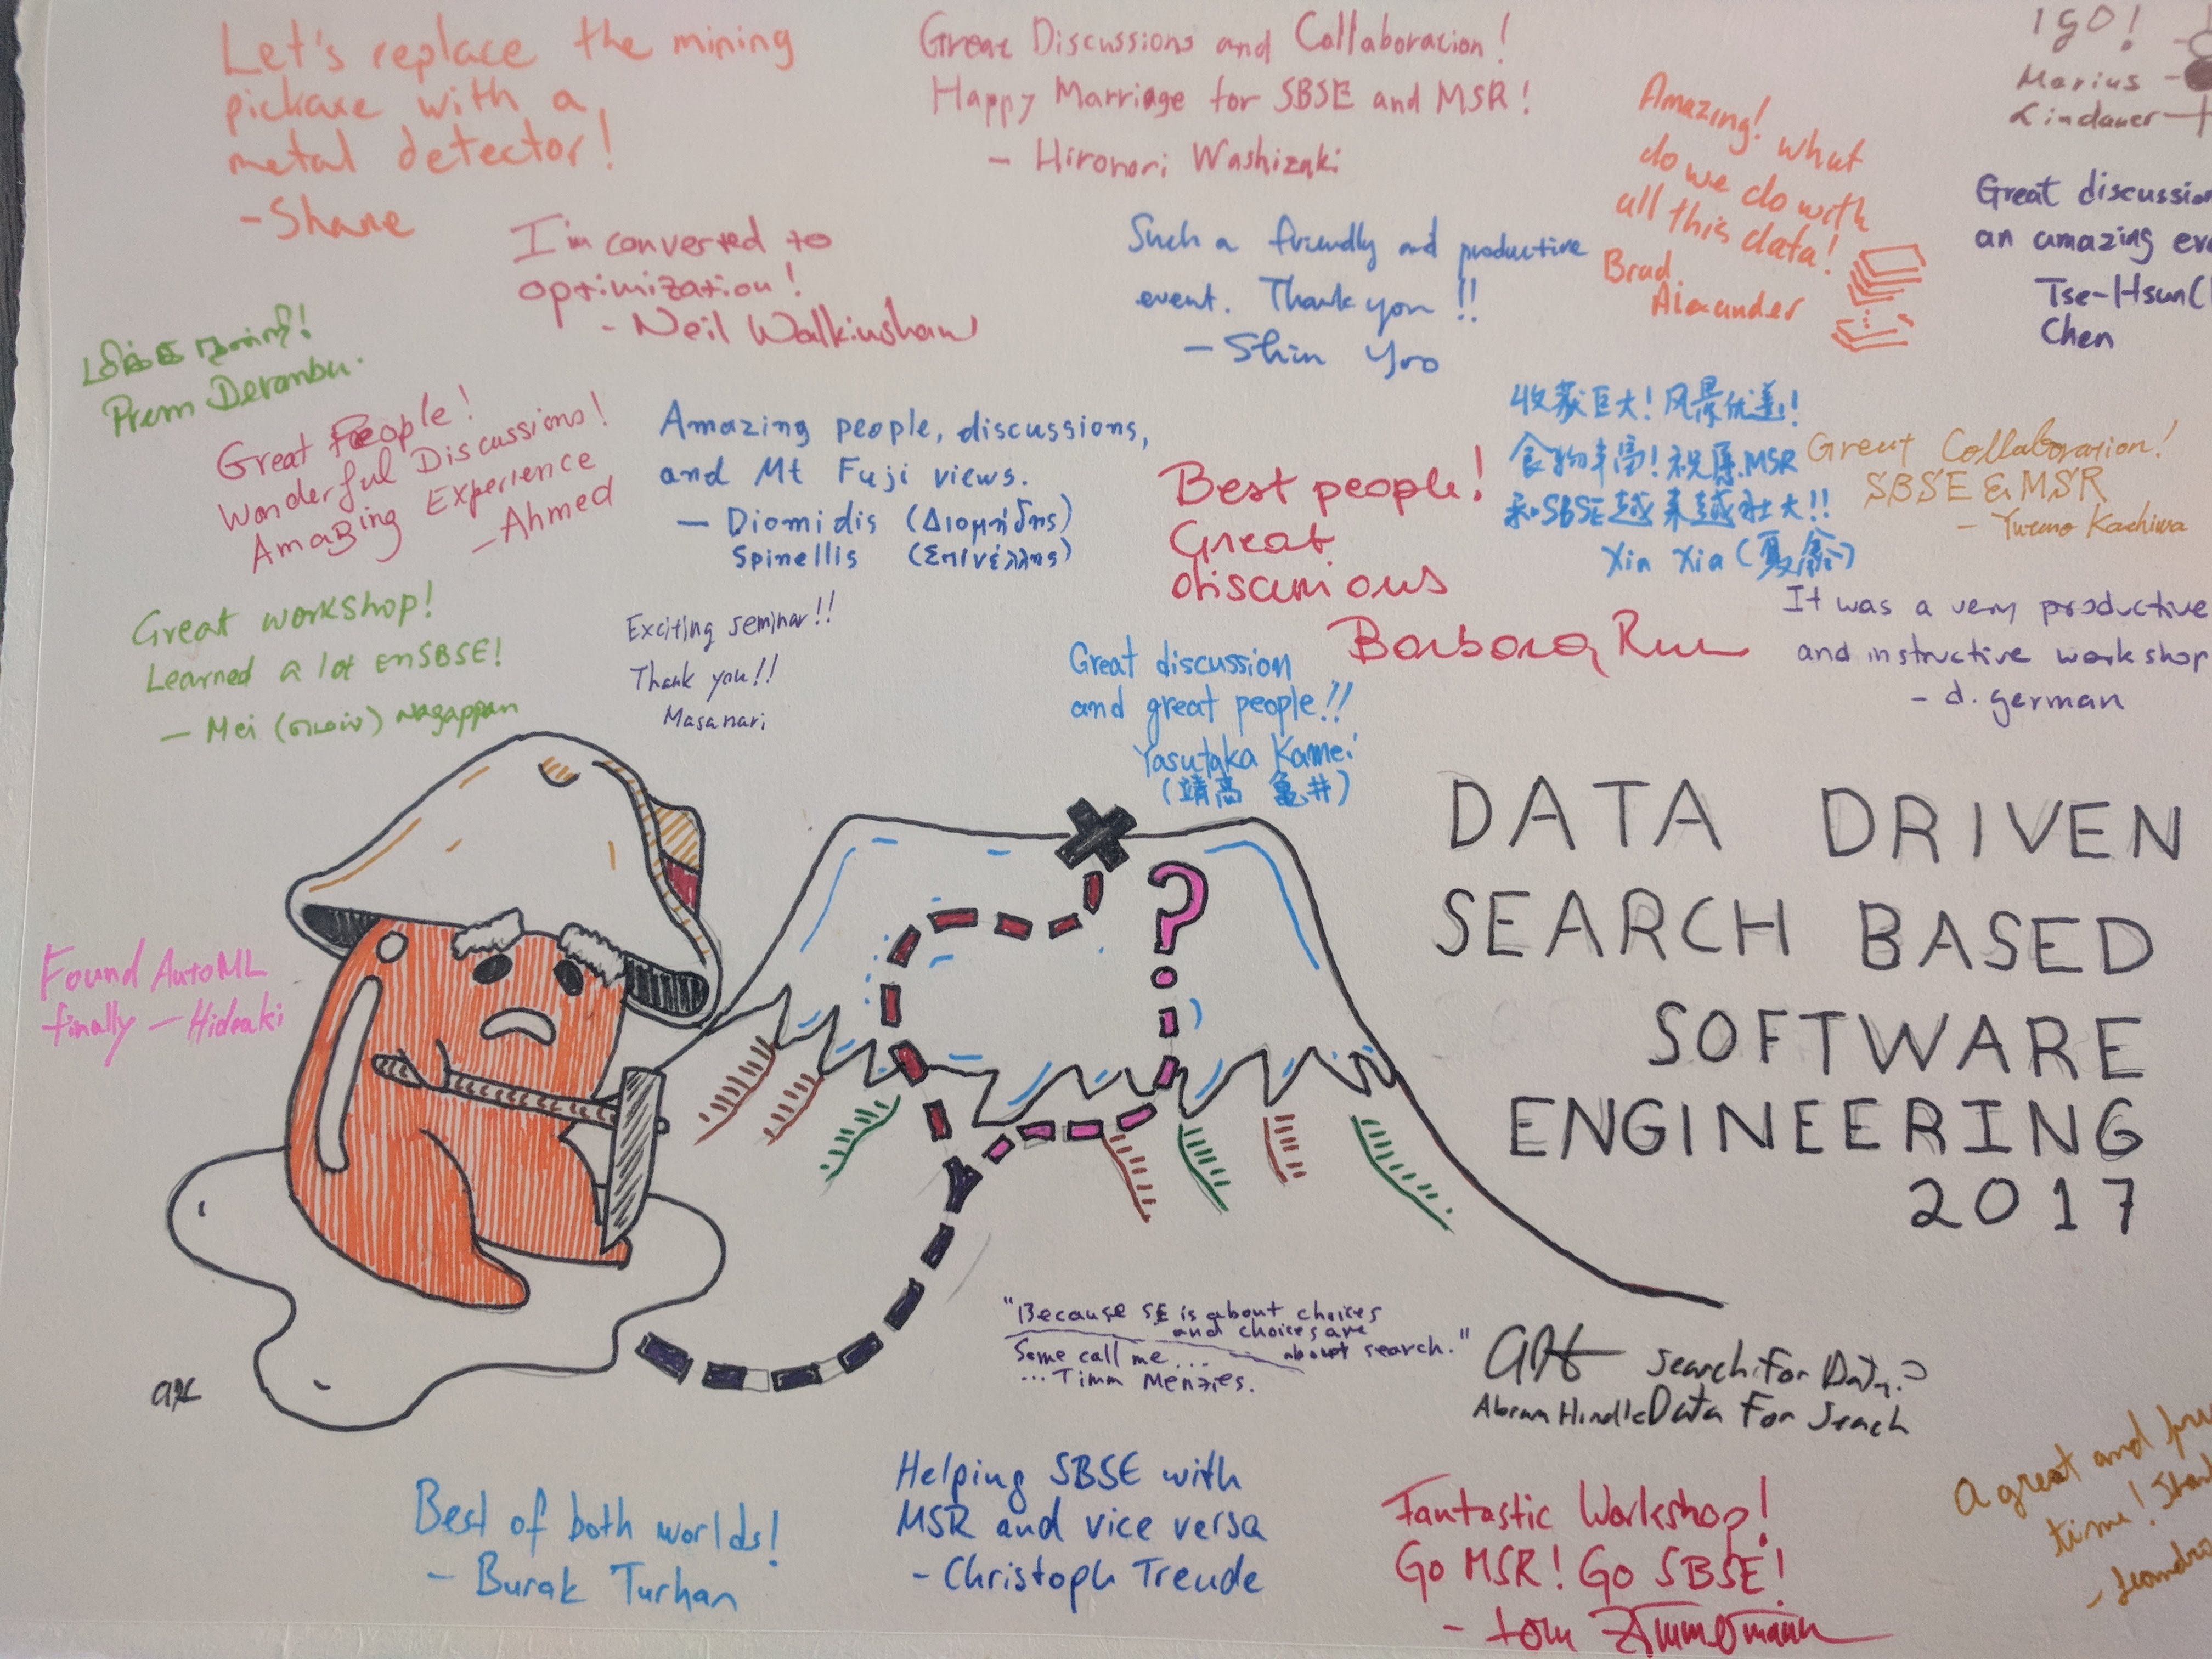 Let's replace the mining
pickaxe with a
metal detector!
- Shane
Great Discussions and Collaboration!
Happy Marriage for SBSE and MSR!
- Hironori Washizaki
I go!
Marius
Lindauer
Amazing! what
do we do with
all this data!
Brad
Alexander
Great discussion
an amazing
Tse-Hsun
Chen
I'm converted to
optimization!
- Neil Walkinshaw
Such a friendly and productive
event. Thank you !!
- Shin Yoo
மிக்க நன்றி!
Prem Devanbu.
Great People!
Wonderful Discussions!
Amazing Experience
- Ahmed
Amazing people, discussions,
and Mt Fuji views.
- Diomidis (Διομήδης)
Spinellis (Σπινέλλης)
Best people!
Great
Barbara
收获巨大！风景优美！
食物丰富！祝愿MSR
和SBSE越来越壮大！！
Xin Xia (夏鑫)
Great Collaboration!
SBSE & MSR
- Kashiwa
It was a very productive
and instructive workshop
- d. german
Great workshop!
Learned a lot SBSE!
- Mei Nagappan
Exciting seminar!!
Thank you!!
Masanari
Great discussion
and great people!!
Yasutaka Kamei
(靖高 亀井)
DATA DRIVEN
SEARCH BASED
SOFTWARE
ENGINEERING
2017
?
Found AutoML
finally - Hideaki
"Because SE is about choices
and choices are
about search."
Some call me...
...Timm Menzies.
Search For Data?
Abram Hindle Data For Search
A great and
time!
Best of both worlds!
- Burak Turhan
Helping SBSE with
MSR and vice versa
- Christoph Treude
Fantastic Workshop!
Go MSR! Go SBSE!
- Tom Zimmermann